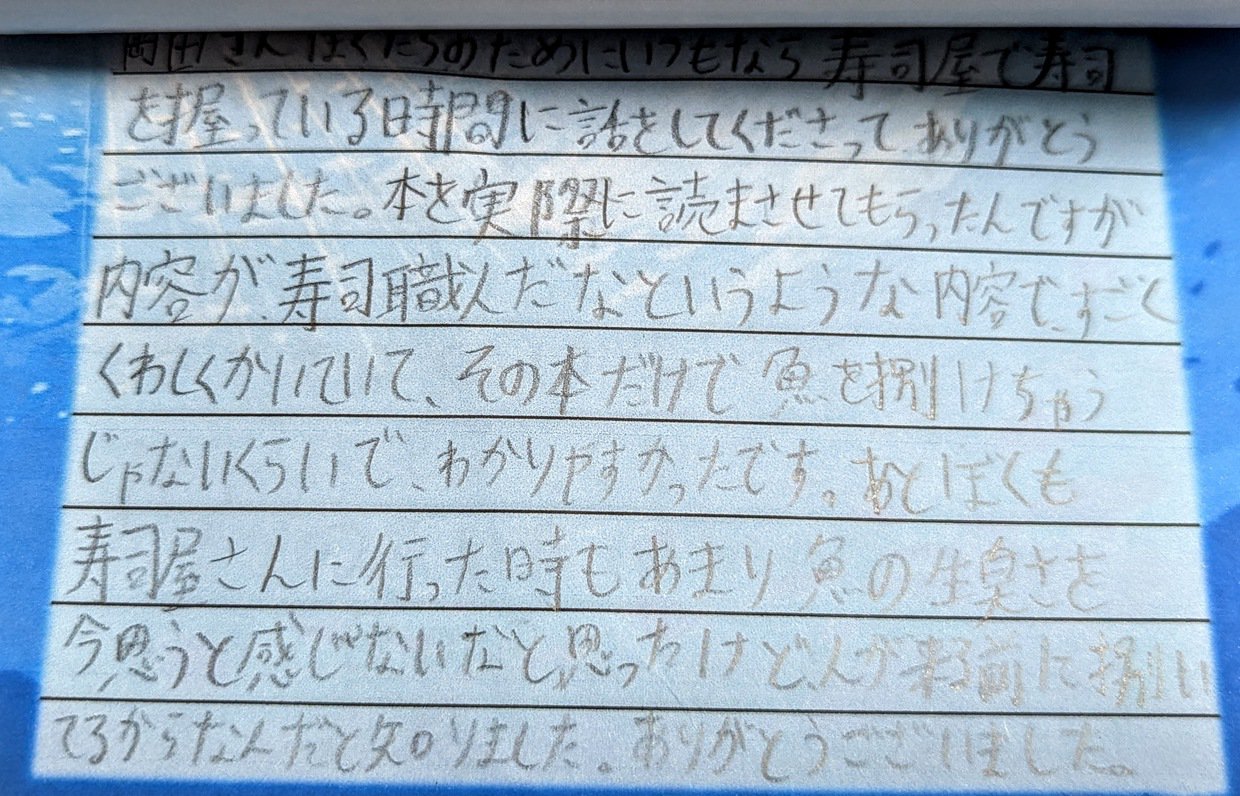 岡田さんぼくたちのためにいつもなら寿司屋で寿司
を握っている時間に話をしてくださって、ありがとう
ございました。本を実際に読まさせてもらったんですが
内容が、寿司職人だなというような内容で、すごく
くわしくかいていて、その本だけで魚を捌けちゃう
じゃないくらいで、わかりやすかったです。あとぼくも
寿司屋さんに行った時もあまり魚の生臭さを
今思うと感じないなと、思ったけど、人が来る前に捌い
てるからなんだと知りました。ありがとうございました。